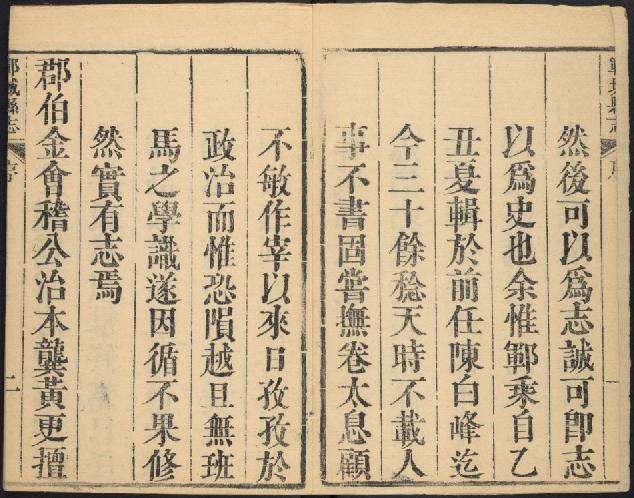 然後可以爲志誠可卽志
以爲史也余惟鄆乘自乙
丑夏輯於前任陳白峰迄
今三十餘稔天時不載人
事不書固嘗撫卷太息顧
不敏作宰以來日孜孜於
政治而惟恐隕越且無班
馬之學識遂因循不果修
然實有志焉
郡伯金會稽公治本龔黃更擅
鄆城縣志
序
二